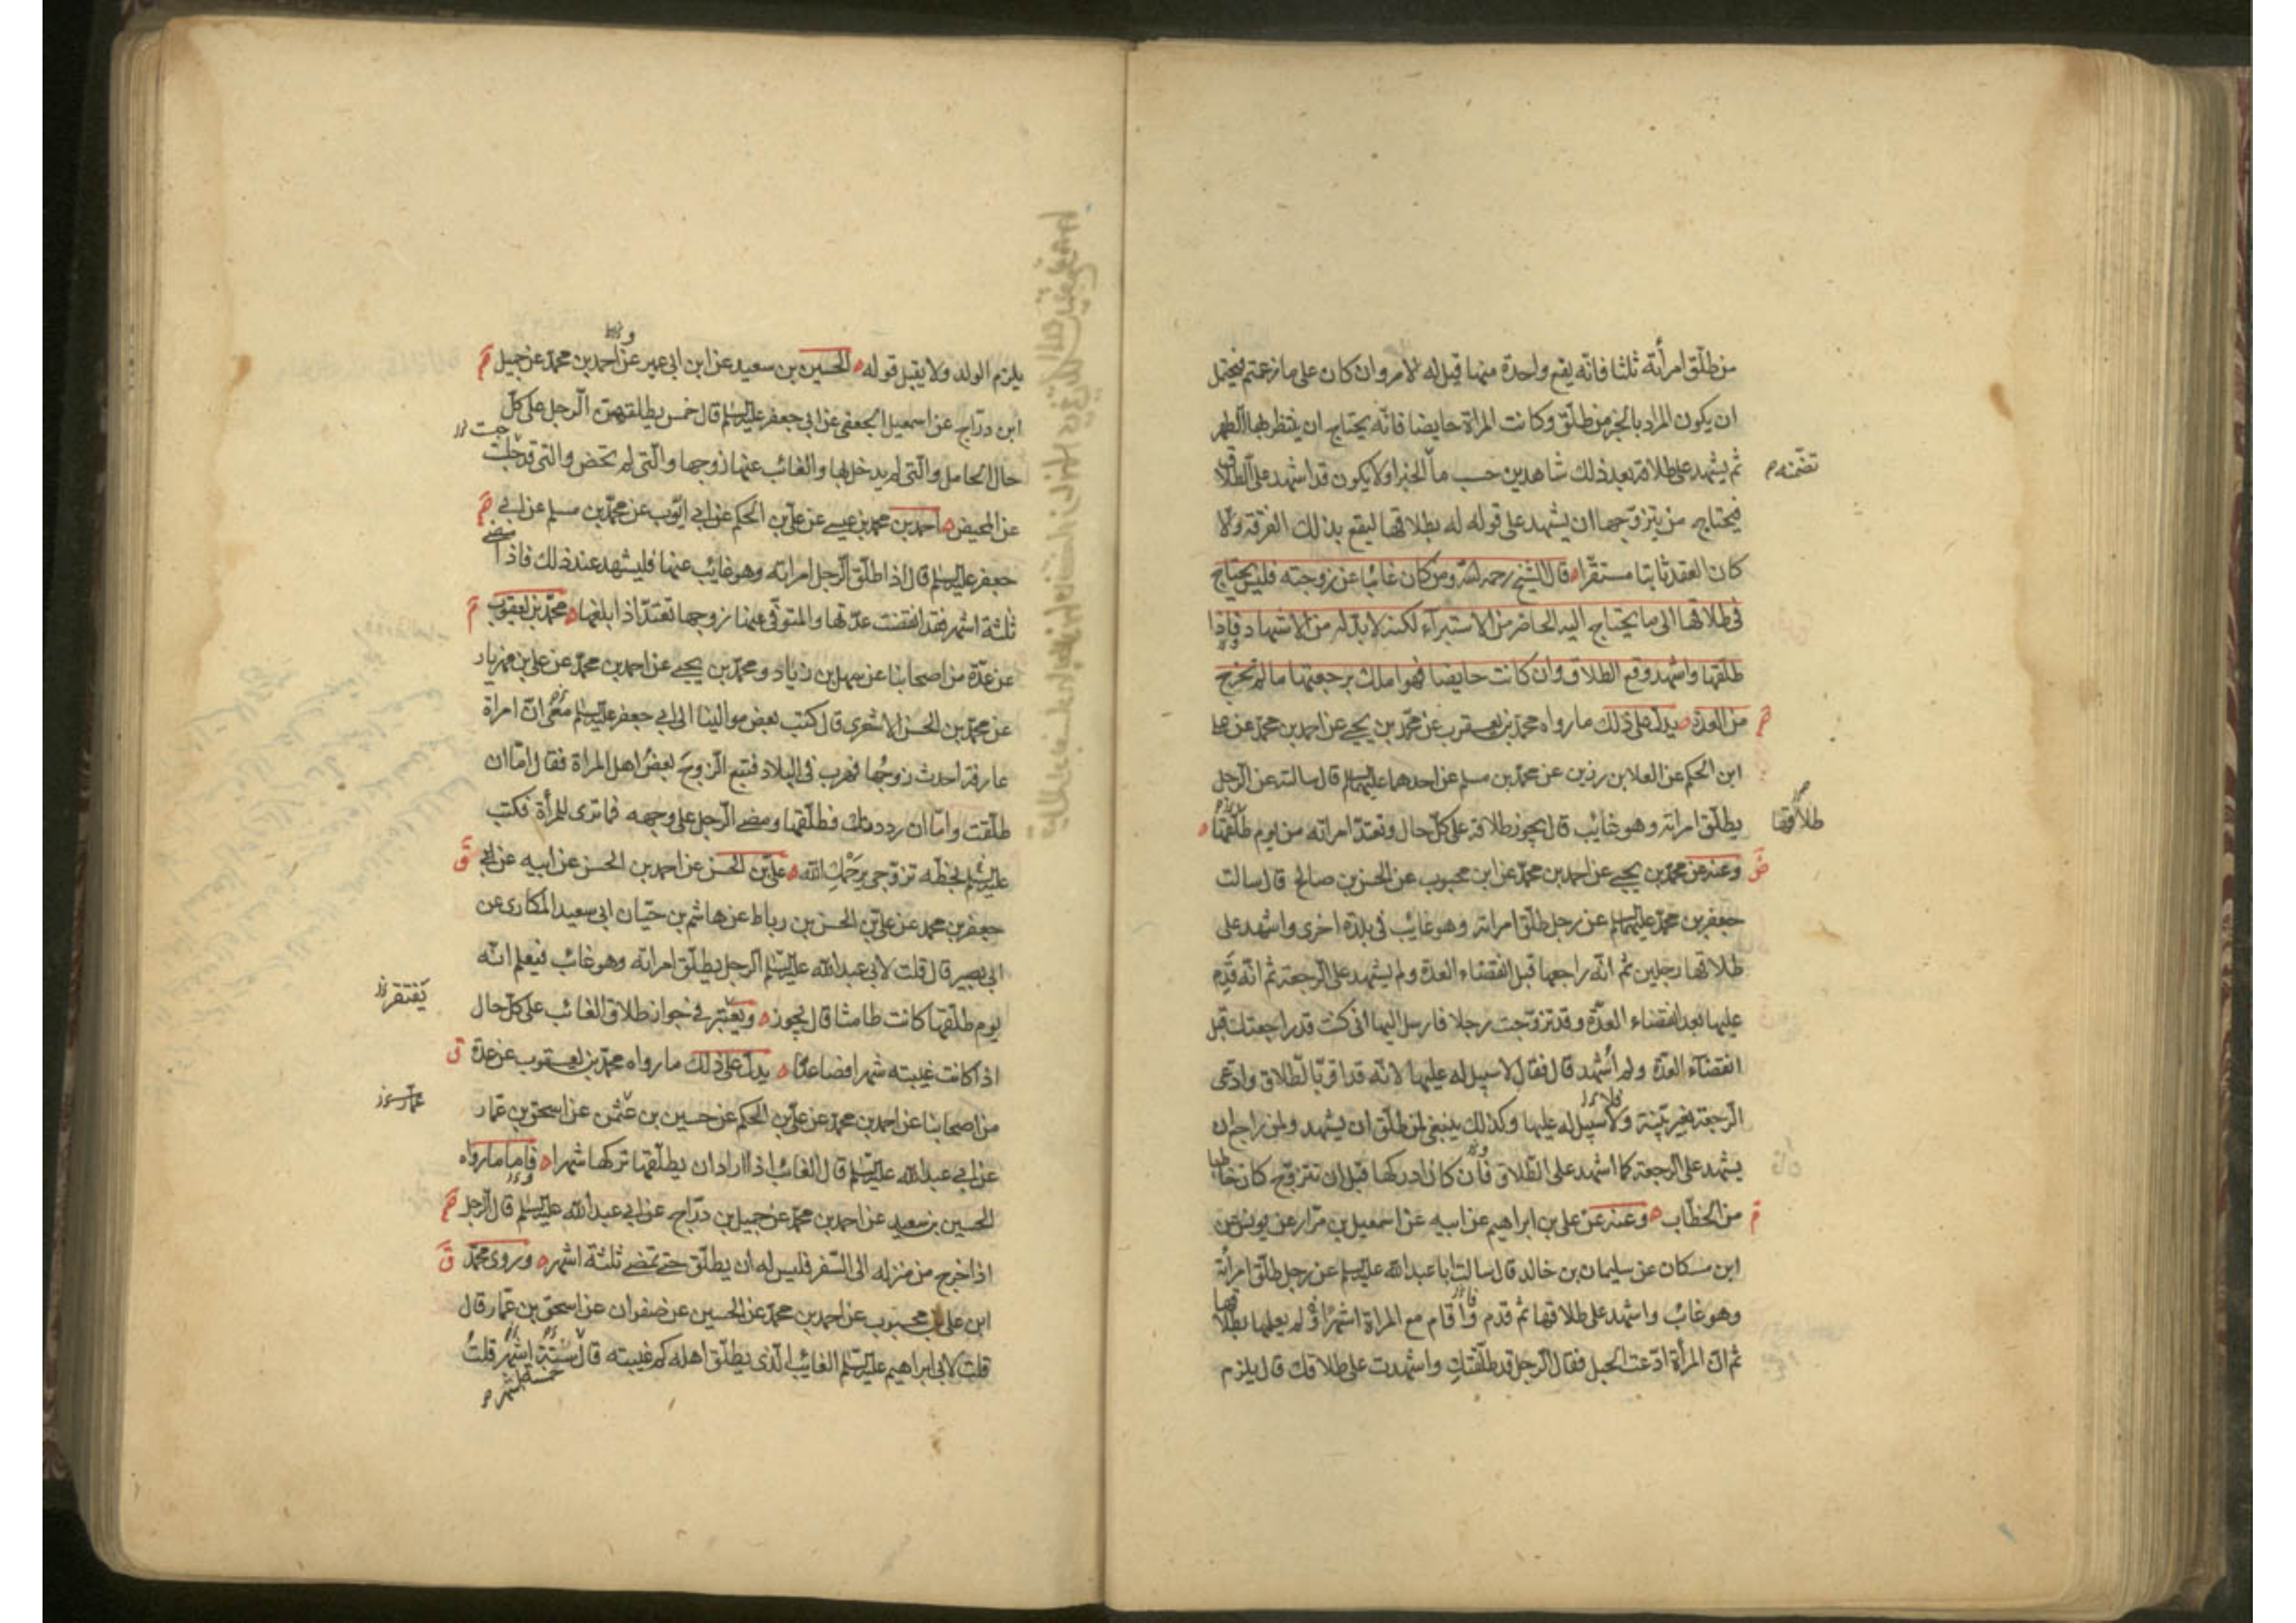 من طلّق امرأته ثلثا فانّه يقع واحدة منها قيل له لامر وان كان على ما زعمتم فيحتمل
ان يكون المراد بالخبر من طلّق وكانت المراة حايضا فانّه يحتاج ان ينتظر بها الطهر
ثم يشهد على طلاقه بعد ذلك شاهدين حسب ما الخبر اولا يكون قد اشهد على الطلاق
تضمّنه
فيحتاج من يتزوّجها ان يشهد على قوله له بطلاقها ليقع بذلك الفرقة والا
كان العقد ثابتا مستقرا قال الشيخ رحمه الله ومن كان غائبا عن زوجته فليس يحتاج
فى طلاقها الى ما يحتاج اليه الحاضر من الاستبرآء لكنه لابد له من الاشهاد فاذا
طلقها واشهد وقع الطلاق وان كانت حايضا فهو املك برجعتها ما لم تخرج
من العدّة يدلّ على ذلك ما رواه محمد بن يعقوب عن محمّد بن يحيى عن احمد بن محمد عن على
ابن الحكم عن العلا بن رزين عن محمد بن مسلم عن احدهما عليهما السلم قال سالته عن الرجل
يطلّق امراته وهو غايب قال يجوز طلاقه على كلّ حال وتعتدّ امراته من يوم طلّقها
طلاقها
وعنه عن محمّد بن يحيى عن احمد بن محمّد عن ابن محبوب عن الحسن بن صالح قال سالت
جعفر بن محمّد عليهما السلم عن رجل طلّق امراته وهو غايب فى بلدة اخرى واشهد على
طلاقها رجلين ثم انّه راجعها قبل انقضاء العدة ولم يشهد على الرجعة ثم انّه قدم
عليها بعد انقضاء العدّة وقد تزوّجت رجلا فارسل اليها انى كنت قد راجعتك قبل
انقضآء العدّة ولم اُشهد قال فقال لا سبيل له عليها لانّه قد اقرّ بالطلاق وادّعى
الرجعة بغير بيّنة ولا سبيل له عليها وكذلك ينبغى لمن طلّق ان يشهد ولمن راجع ان
يشهد على الرجعة كما اشهد على الطّلاق فان كان ادركها قبل ان تتزوّج كان خاطبا
من الخطّاب وعنه عن على بن ابراهيم عن ابيه عن اسمعيل بن مرّار عن يونس عن
ابن مسكان عن سليمان بن خالد قال سالت ابا عبد الله عليه السلم عن رجل طلّق امرأته
وهو غائب واشهد على طلاقها ثم قدم واقام مع المراة اشهرًا لم يعلمها بطلاقها
ثم انّ المرأة ادّعت الحبل فقال الرجل قد طلّقتكِ واشهدت على طلاقك قال يلزم
يلزم الولد ولا يقبل قوله الحسين بن سعيد عن ابن ابى عمير عن احمد بن محمّد عن جميل
ابن درّاج عن اسمعيل الجعفى عن ابى جعفر عليه السلم قال خمس يطلقهنّ الرجل على كلّ
حال الحامل والتى لم يدخل بها والغائب عنها زوجها والّتى لم تحض والتى قد جلست
عن المحيض احمد بن محمد بن عيسى عن علىّ بن الحكم عن ابى ايّوب عن محمّد بن مسلم عن ابى
جعفر عليه السلم قال اذا طلّق الرجل امراته وهو غائب عنها فليشهد عند ذلك فاذا مضى
ثلثة اشهر فقد انقضت عدّتها والمتوفّى عنها زوجها تعتدّ اذا ابلغها محمّد بن يعقوب
عن عدّة من اصحابنا عن سهل بن زياد ومحمّد بن يحيى عن احمد بن محمّد عن على بن مهزيار
عن محمّد بن الحسن الاشعرى قال كتب بعض موالينا الى ابى جعفر عليه السلم معى انّ امراة
عارفة احدث زوجُها فهرب فى البلاد فتبع الزوجَ بعضُ اهل المراة فقال امّا ان
طلّقت وامّا ان رددتك فطلّقها ومضى الرجل على وجهه فما ترى للمرأة فكتب
عليه السلم بخطّه تزوّجى يرحمكِ الله علىّ بن الحسن عن احمد بن الحسن عن ابيه عن
جعفر بن محمد عن علىّ بن الحسن بن رباط عن هاشم بن حيّان ابى سعيد المكارى عن
ابى بصير قال قلت لابى عبد الله عليه السلم الرجل يطلّق امراته وهو غائب فيعلم انّه
يوم طلّقها كانت طامثا قال يجوز ويعتبر فى جواز طلاق الغائب على كلّ حال
يفتقر
اذا كانت غيبته شهرا فصاعدًا يدلّ على ذلك ما رواه محمّد بن يعقوب عن عدّة
من اصحابنا عن احمد بن محمّد عن علىّ بن الحكم عن حسين بن عثمن عن اسحق بن عمّار
عن ابى عبد الله عليه السلم قال الغائب اذا اراد ان يطلّقها تركها شهرا فاما ما رواه
الحسين بن سعيد عن احمد بن محمّد عن جميل بن درّاج عن ابى عبد الله عليه السلم قال الرجل
اذا خرج من منزله الى السّفر فليس له ان يطلّق حتى تمضى ثلثة اشهر وروى محمّد
ابن على بن محبوب عن احمد بن محمّد عن الحسين عن صفوان عن اسحق بن عمّار قال
قلت لابى ابراهيم عليه السلم الغائب الّذى يطلّق اهله كم غيبته قال ستّة اشهر قلتُ
خمسة اشهر